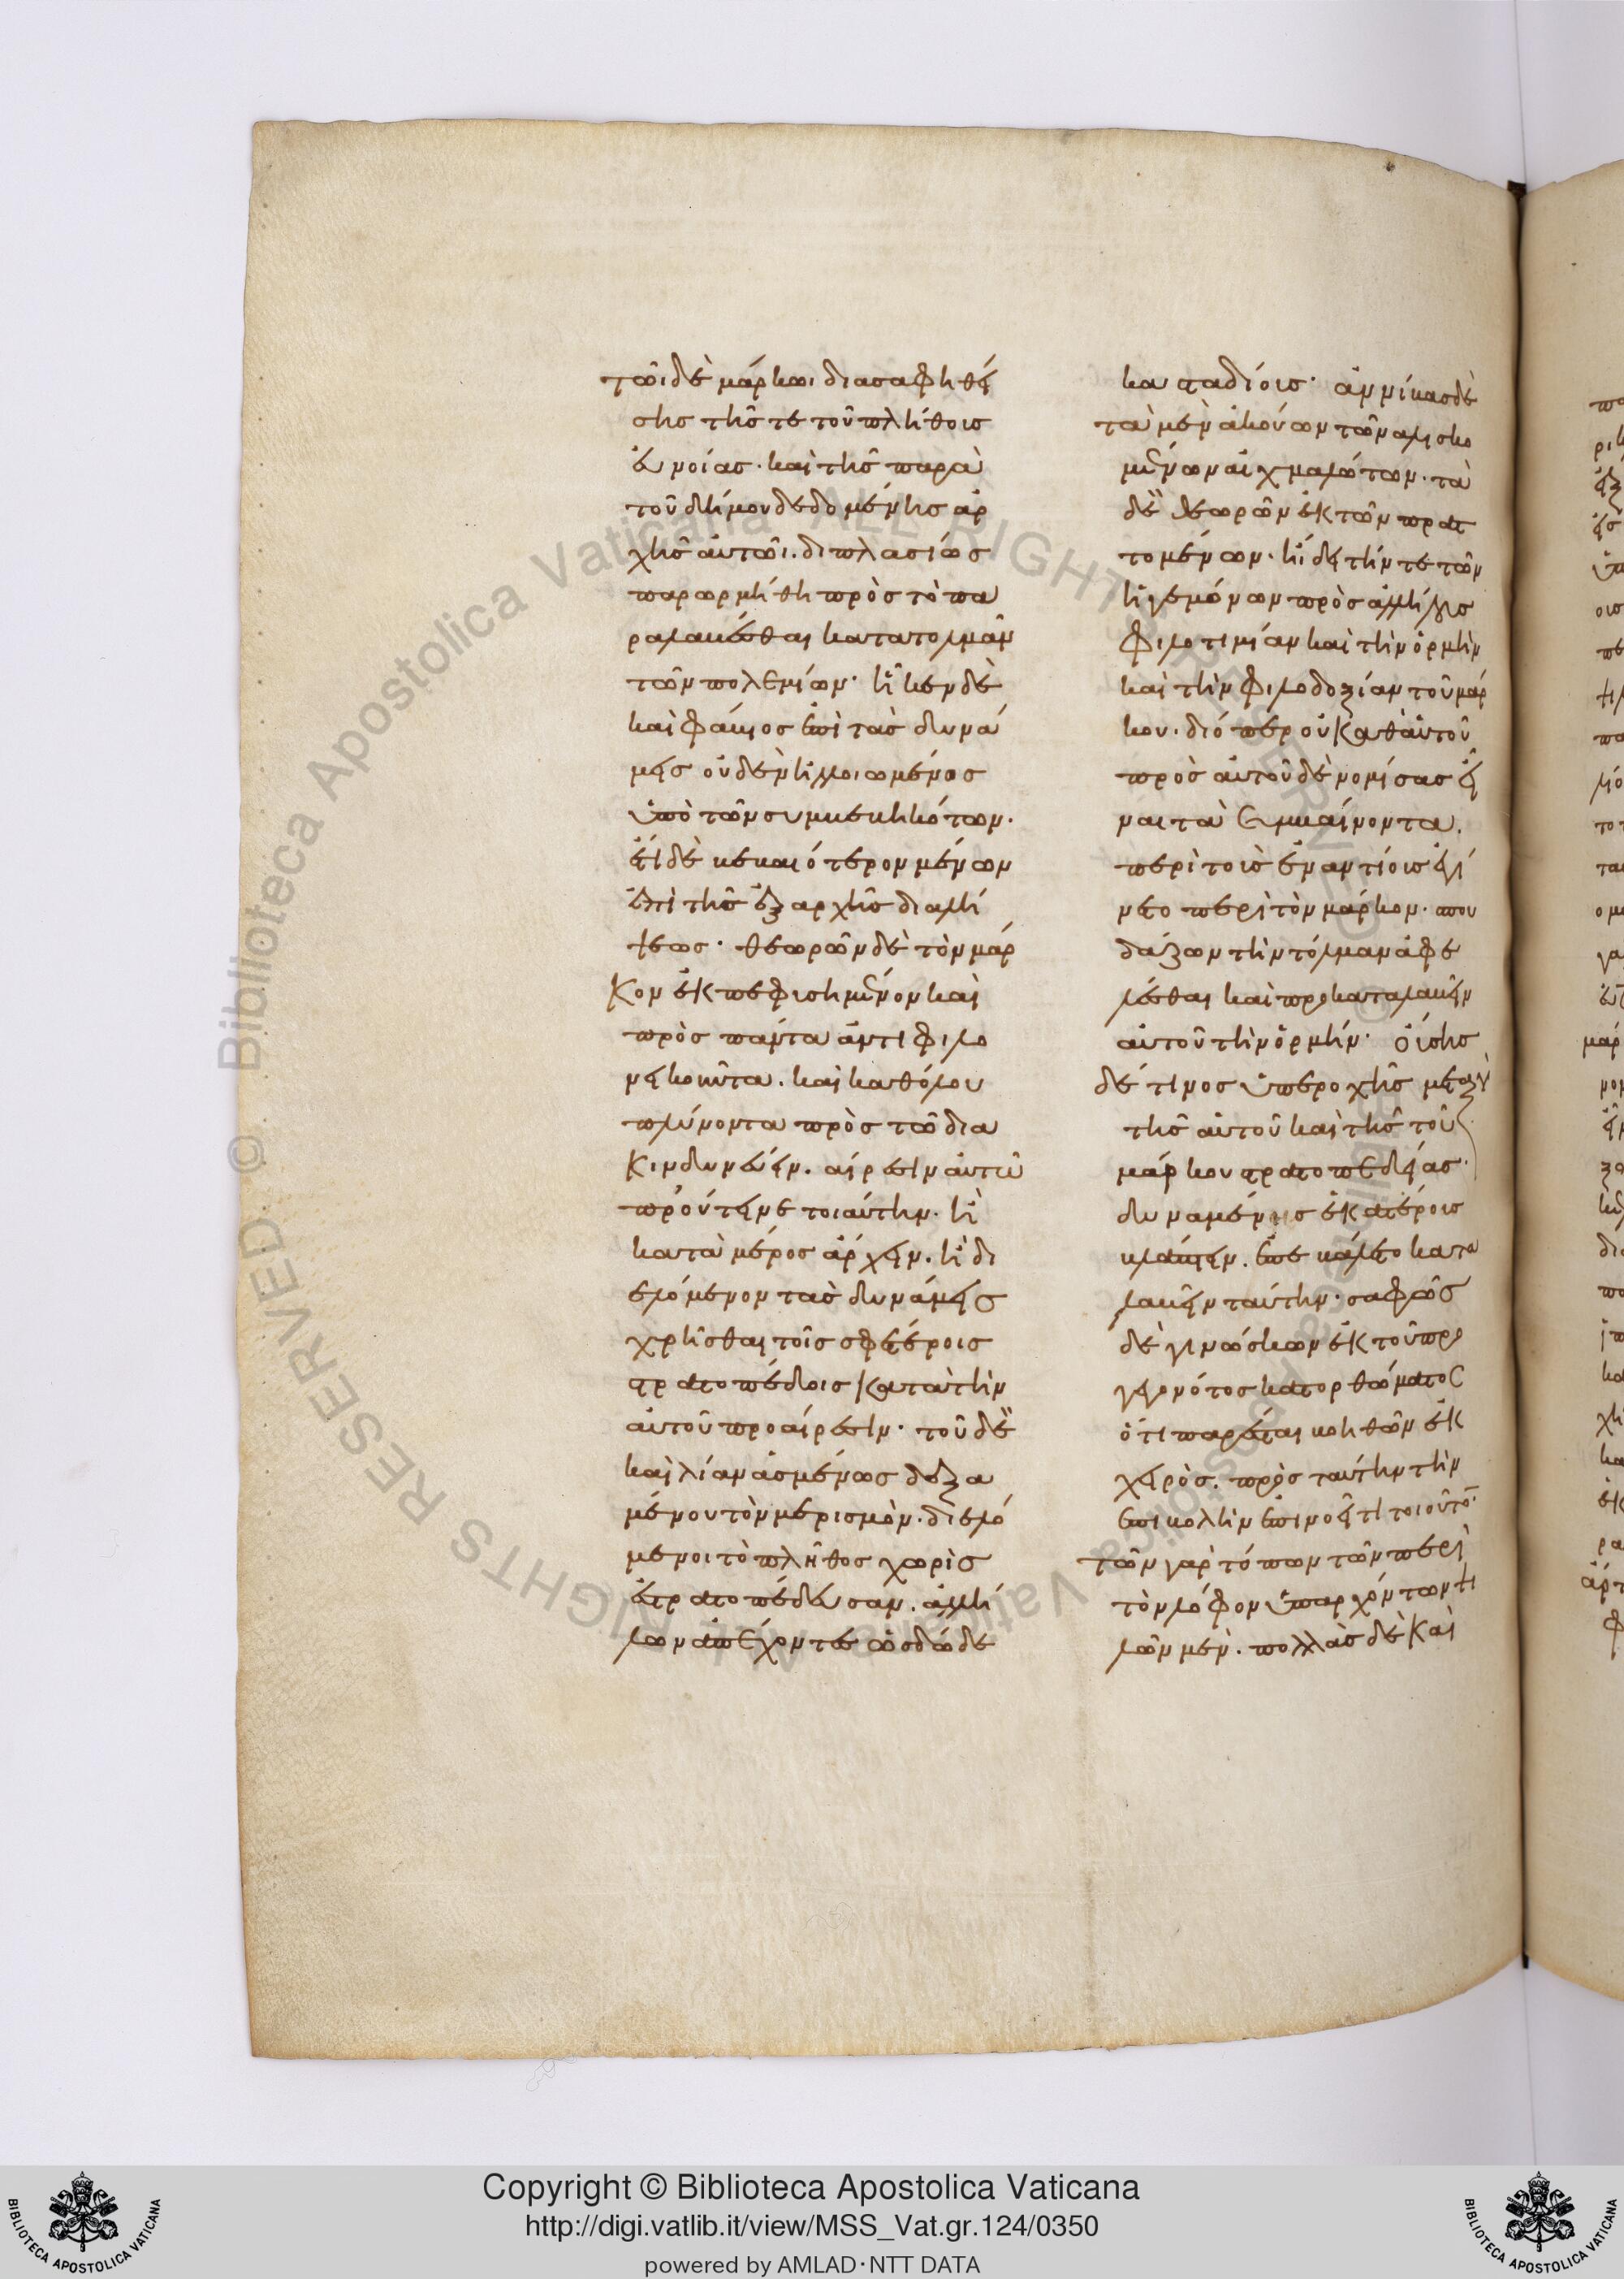 τῶι δὲ μάρκωι διασαφηθεί
σης τῆς τε τοῦ πλήθους
εὐνοίας· καὶ τῆς παρὰ
τοῦ δήμου δεδομένης ἀρ
χῆς αὐτῶι. διπλασίως
παρωρμήθη πρὸς τὸ πα
ραβάλεσθαι κατατολμᾶν
τῶν πολεμίων· ἧκεν δὲ
καὶ φάβιος ἐπὶ τὰς δυνά
μεις οὐδὲν ἠλλοιωμένος
ὑπὸ τῶν συμβεβηκότων.
ἔτι δὲ βεβαιότερον μένων
ἐπὶ τῆς ἐξ ἀρχῆς διαλή
ψεως· θεωρῶν δὲ τὸν μάρ
κον ἐκπεφυσημένον καὶ
πρὸς πάντα ἀντιφιλο
νεικοῦντα. καὶ καθόλου
πλύνοντα πρὸς τῶ δια
κινδυνεύειν. αἵρεσιν αὐτῶ
προύτεινε τοιαύτην. ἢ
κατὰ μέρος ἄρχειν. ἢ δι
ελόμενον τὰς δυνάμεις
χρῆσθαι τοῖς σφετέροις
στρατοπέδοις κατὰ τὴν
αὐτοῦ προαίρεσιν· τοῦ δὲ
καὶ λίαν ἀσμένως δεξα
μένου τὸν μερισμὸν. διελό
μενοι τὸ πλῆθος χωρὶς
ἐστρατοπέδευσαν. ἀλλή
λων ἀπέχοντες ὡς δώδε
κα σταδίους· ἀννίβας δὲ
τὰ μὲν ἀκούων τῶν ἁλισκο
μένων αἰχμαλώτων. τὰ
δὲ θεωρῶν ἐκ τῶν πρατ
τομένων. ἤιδει τήν τε τῶν
ἡγεμόνων πρὸς ἀλλήλους
φιλοτιμίαν καὶ τὴν ὁρμὴν
καὶ τὴν φιλοδοξίαν τοῦ μάρ
κου. διόπερ οὐ καθ' αὐτοῦ
πρὸς αὐτοῦ δὲ νομίσας εἶ
ναι τὰ συμβαίνοντα.
περὶ τοὺς ἐναντίους ἐγί
νετο περὶ τὸν μάρκον. σπου
δάζων τὴν τόλμαν ἀφε
λέσθαι καὶ προκαταλαβεῖν
αὐτοῦ τὴν ὁρμήν· οὔσης
δέ τινος ὑπεροχῆς μεταξὺ
τῆς αὐτοῦ καὶ τῆς τοῦ
μάρκου στρατοπεδείας·
δυναμένης ἑκατέρους
βλάπτειν. ἐπεβάλετο κατα
λαβεῖν ταύτην· σαφῶς
δὲ γινώσκων ἐκ τοῦ προ
γεγονότος κατορθώματος
ὅτι παρέσται βοηθῶν ἐκ
χειρὸς. πρὸς ταύτην τὴν
ἐπιβολὴν ἐπινοεῖ τι τοιοῦτον·
τῶν γὰρ τόπων τῶν περὶ
τὸν λόφον ὑπαρχόντων ψι
λῶν μὲν. πολλὰς δὲ καὶ
Copyright © Biblioteca Apostolica Vaticana
http://digi.vatlib.it/view/MSS_Vat.gr.124/0350
powered by AMLAD·NTT DATA